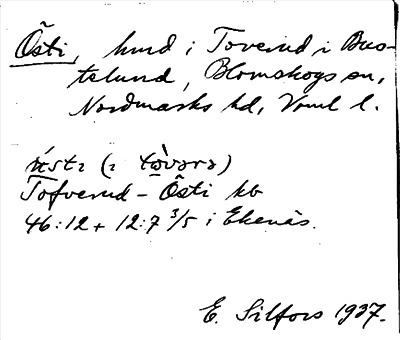 Östi, hmd i Toverud i Bus-
telund, Blomskogs sn,
Nordmarks hd, Vrml l.
ẃstɩ (ɩ tòvərə)
Tofverud - Östi kb
46:12 + 12:7 3/5 i Ekenäs.
E. Silfors 1937.